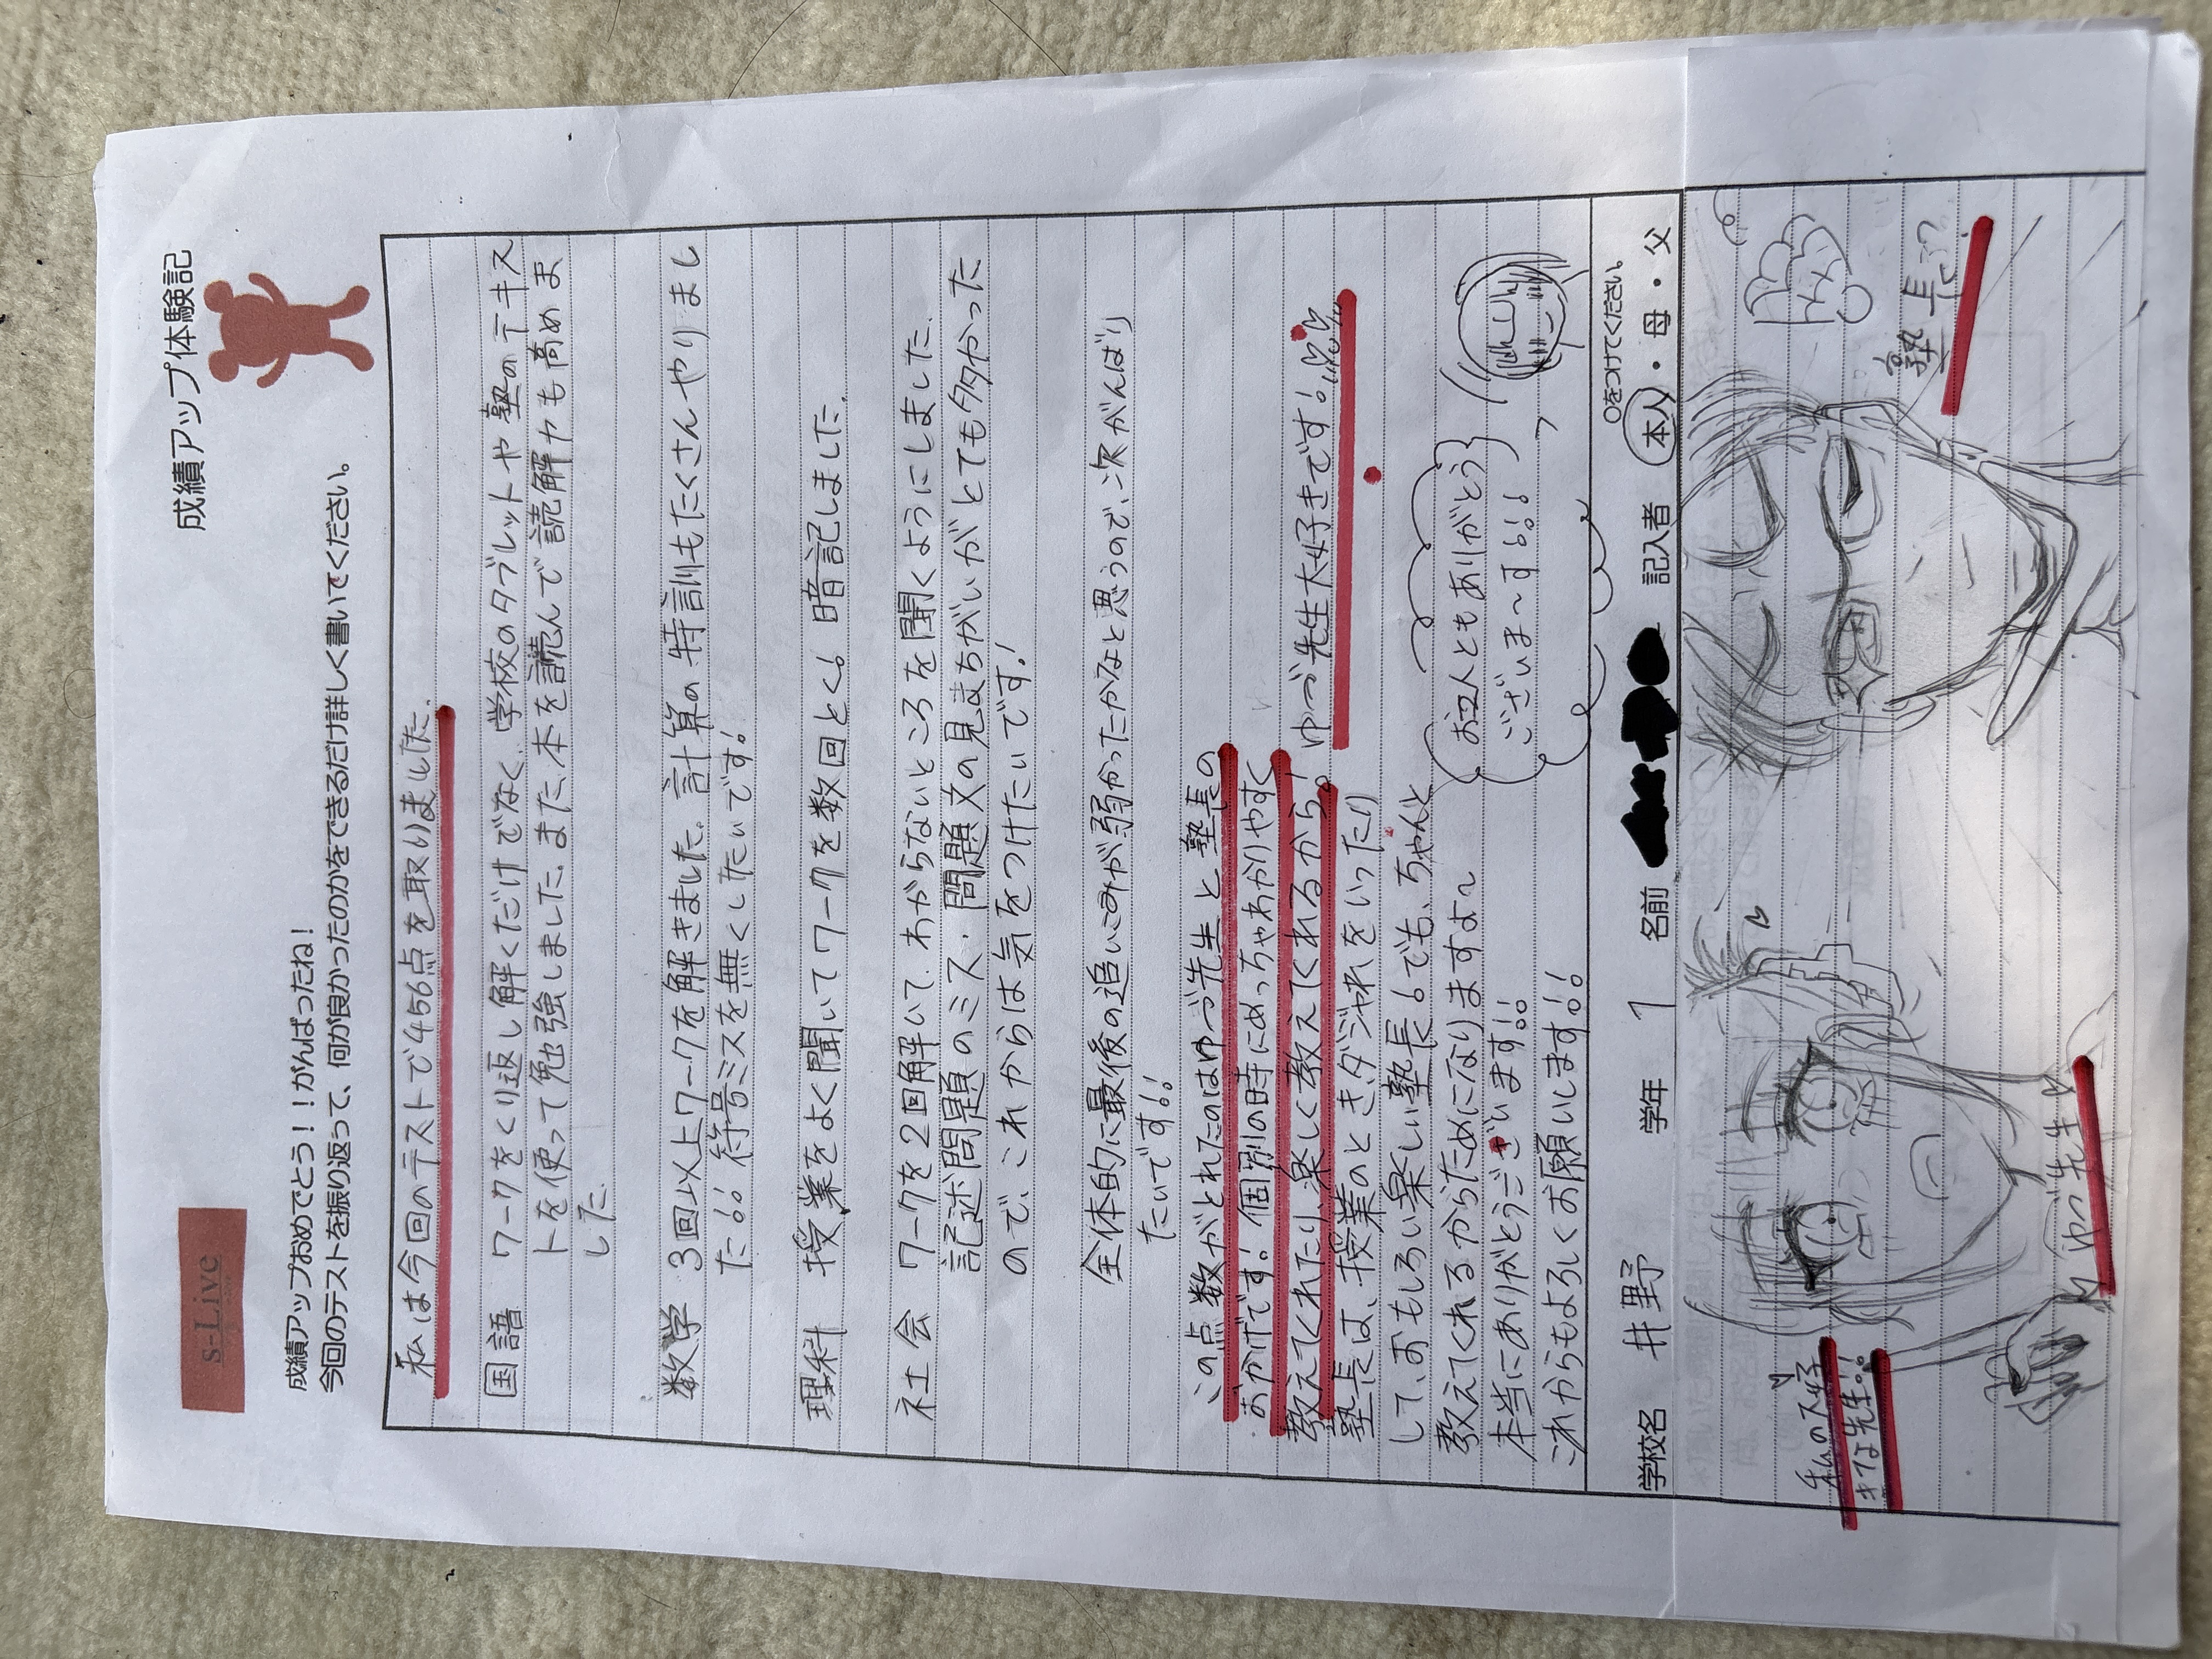 s-Live
成績アップ体験記
成績アップおめでとう！！がんばったね！
今回のテストを振り返って、何が良かったのかをできるだけ詳しく書いてください。
私は今回のテストで456点を取りました。
国語 ワークをくり返し解くだけでなく、学校のタブレットや塾のテキス
トを使って勉強しました。また、本を読んで読解力も高めま
した。
数学 3回以上ワークを解きました。計算の特訓もたくさんやりまし
た!! 符号ミスを無くしたいです!
理科 授業をよく聞いてワークを数回とく。暗記しました。
社会 ワークを2回解いて、わからないところを聞くようにしました。
記述問題のミス、問題文の見まちがいがとても多かった
ので、これからは気をつけたいです!
全体的に最後の追いこみが弱かったかなと思うので、次がんばり
たいです!!
この点数がとれたのはゆづ先生と塾長の
おかげです! 個別の時にめっちゃわかりやすく
教えてくれたり、楽しく教えてくれるから。! ゆづ先生大好きです!
塾長は、授業のとき、ダジャれをいったり
して、おもしろい楽しい塾長! でも、ちゃんと
教えてくれるからためになりますよ〜
本当にありがとうございます!!
これからもよろしくお願いします!!
お2人ともありがとう
ございま〜す!!!
学校名 井野 学年 1 名前 記入者 本人・母・父
○をつけてください。
私の大好
きな先生!!
ゆづ先生
塾長!?